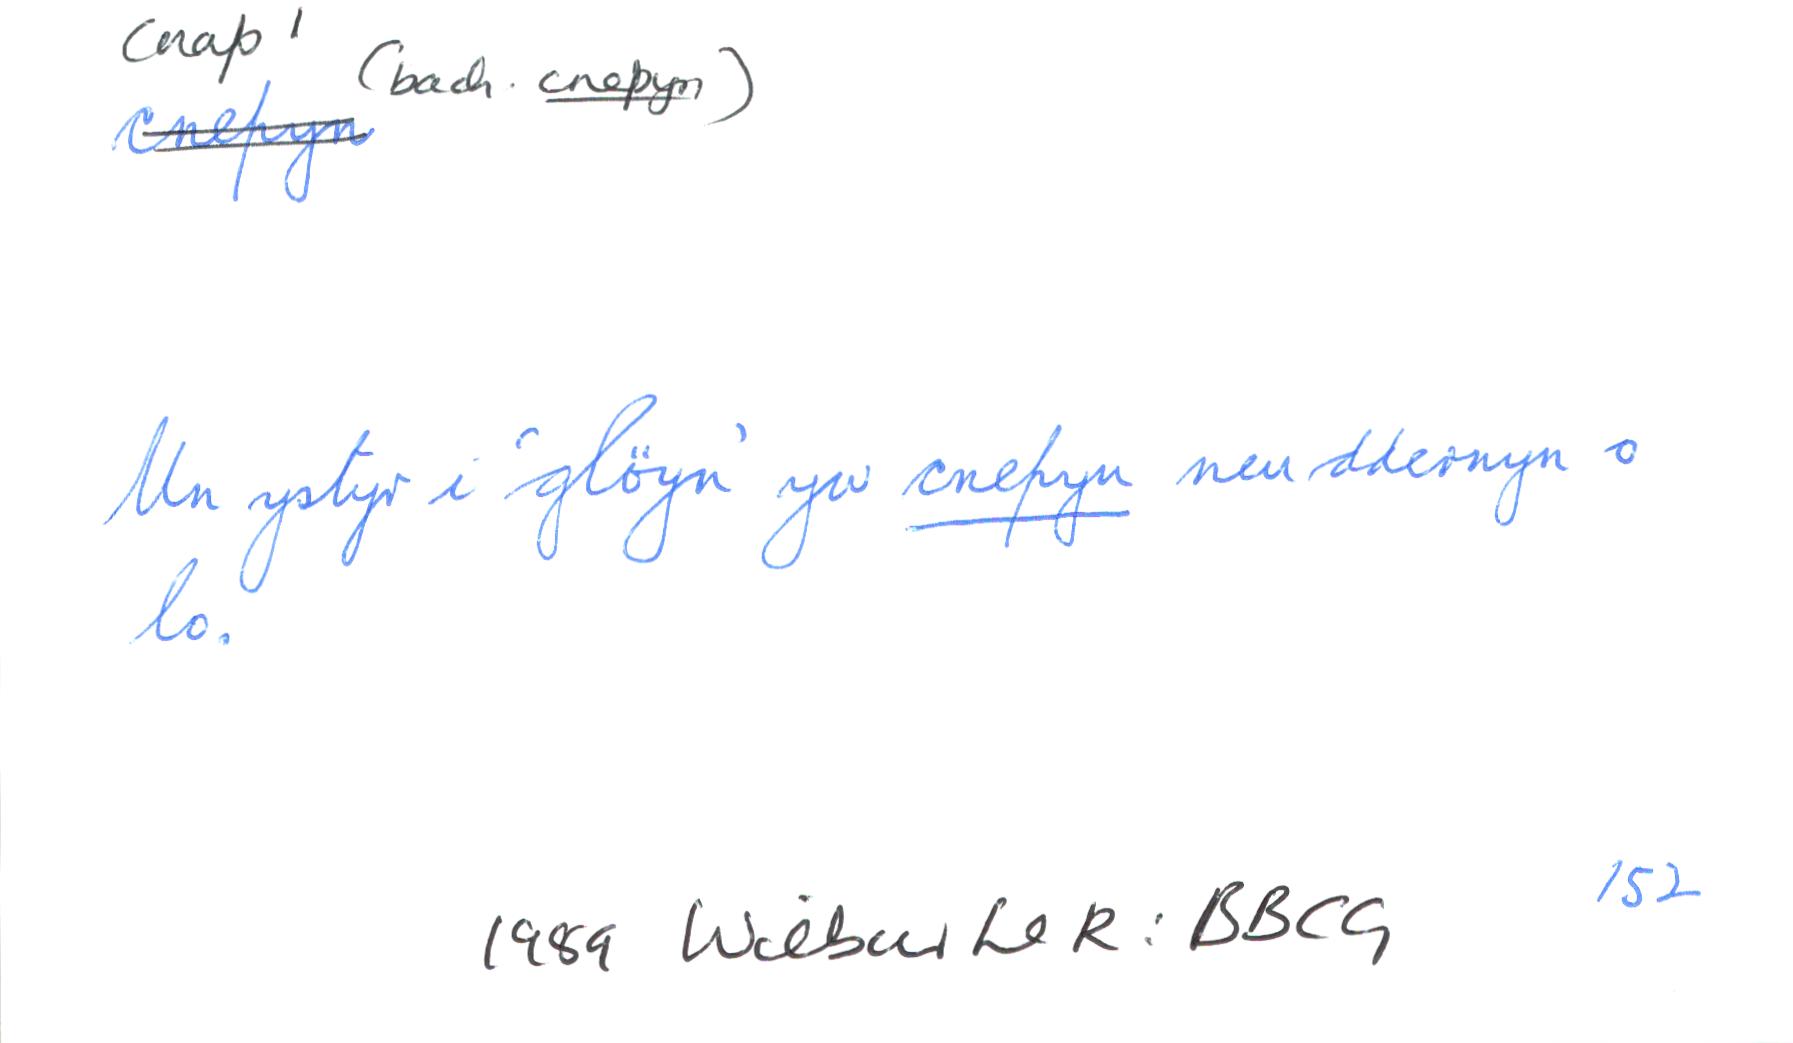 cnap¹
(bach. cnepyn)
cnepyn
Un ystyr i 'glöyn' yw cnepyn neu ddernyn o
lo.
152
1989 Wilbur Ll R: BBCG